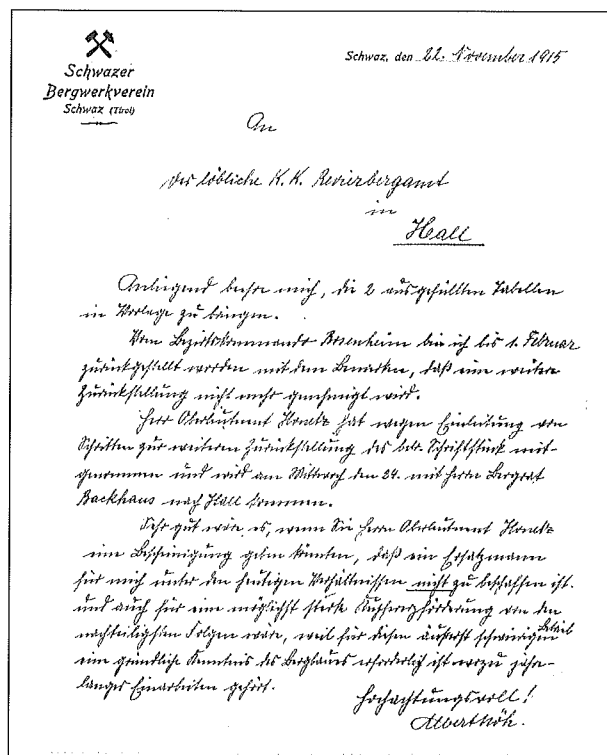 Schwazer
Bergwerkverein
Schwaz (Tirol)
Schwaz, den 22. November 1915
An
das löbliche K. K. Revierbergamt
in
Hall
Anliegend beehre mich, die 2 ausgefüllten Tabellen
in Vorlage zu bringen.
Vom Bezirkskommando Rosenheim bin ich bis 1. Februar
zurückgestellt worden mit dem Bemerken, daß eine weitere
Zurückstellung nicht mehr genehmigt wird.
Herr Oberleutnant hat wegen Einleitung von
Schritten zur weiteren Zurückstellung das betr. Schriftstück mit-
genommen und wird am Mittwoch den 24. mit Herrn Bergrat
Backhaus nach Hall kommen.
Sehr gut wäre es, wenn Sie Herrn Oberleutnant
eine Bescheinigung geben könnten, daß ein Ersatzmann
für mich unter den heutigen Verhältnissen nicht zu beschaffen ist.
und auch für eine möglichst starke Kupfererzförderung von den
nachteiligsten Folgen wäre, weil für diesen äußerst schwierigen Betrieb
eine gründliche Kenntnis des Bergbaues erforderlich ist wozu jahre-
langes Einarbeiten gehört.
Hochachtungsvoll!
Albert Köh.